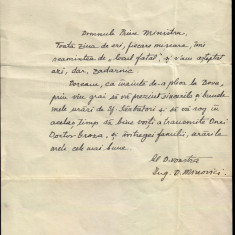 Domnule Prim Ministru,
Toată ziua de eri, fiecare mișcare, îmi
reamintea de "locul fatal", și v'am așteptat
azi, dar, zadarnic
Doream, ca înainte de a pleca la Deva,
prin viu grai să vă prezint sincerile și bunele
mele urări de Sf. Sărbători și să vă rog în
același timp să bine voiți a transmite Dnei
Doctor Groza, și întregei familii, urările
mele cele mai bune.
Al D.voastră
Ing. D. Minovici